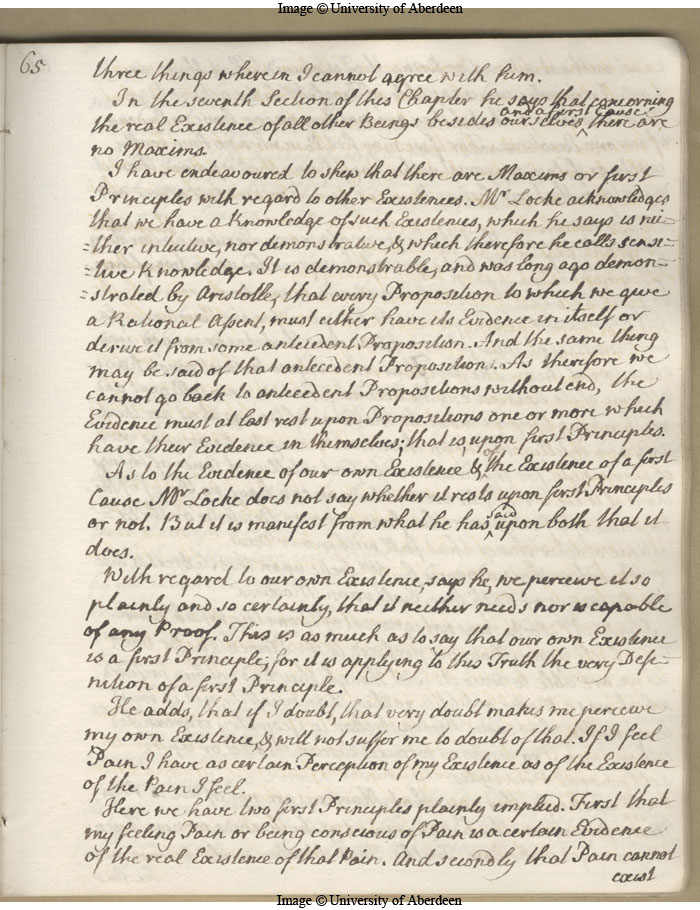 Image © University of Aberdeen
65
three things wherein I cannot agree with him.
In the seventh Section of this Chapter he says that concerning
the real Existence of all other Beings besides ourselves and a first Cause there are
no Maxims.
I have endeavoured to shew that there are Maxims or first
Principles with regard to other Existences. Mr Locke acknowledges
that we have a Knowledge of such Existences, which he says is nei-
=ther intuitive, nor demonstrative, & which therefore he calls sensi-
=tive Knowledge. It is demonstrable, and was long ago demon-
=strated by Aristotle, that every Proposition to which we give
a Rational Assent, must either have its Evidence in itself or
derive it from some antecedent Proposition. And the same thing
may be said of that antecedent Proposition. As therefore we
cannot go back to antecedent Propositions without end, the
Evidence must at last rest upon Propositions one or more which
have their Evidence in themselves; that is, upon first Principles.
As to the Evidence of our own Existence & of the Existence of a first
Cause Mr Locke does not say whether it rests upon first Principles
or not. But it is manifest from what he has said upon both that it
does.
With regard to our own Existence, says he, we perceive it so
plainly and so certainly, that it neither needs nor is capable
of any Proof. This is as much as to say that our own Existence
is a first Principle; for it is applying to this Truth the very Defi-
nition of a first Principle.
He adds, that if I doubt, that very doubt makes me perceive
my own Existence, & will not suffer me to doubt of that. If I feel
Pain I have as certain Perception of my Existence as of the Existence
of the Pain I feel.
Here we have two first Principles plainly implied. First that
my feeling Pain or being conscious of Pain is a certain Evidence
of the real Existence of that Pain. And secondly that Pain cannot
exist
Image © University of Aberdeen